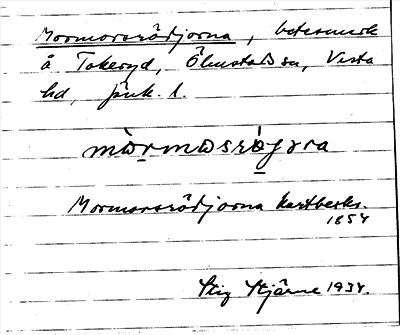 Mormorsrödjorna, betesmark
å Takeryd, Ölmstads sn, Vista
hd, Jönk. l.
mòrmɷsrǿjɷra
Mormorsrödjorna Kartbeskr.
1854
Stig Stjärne 1934.